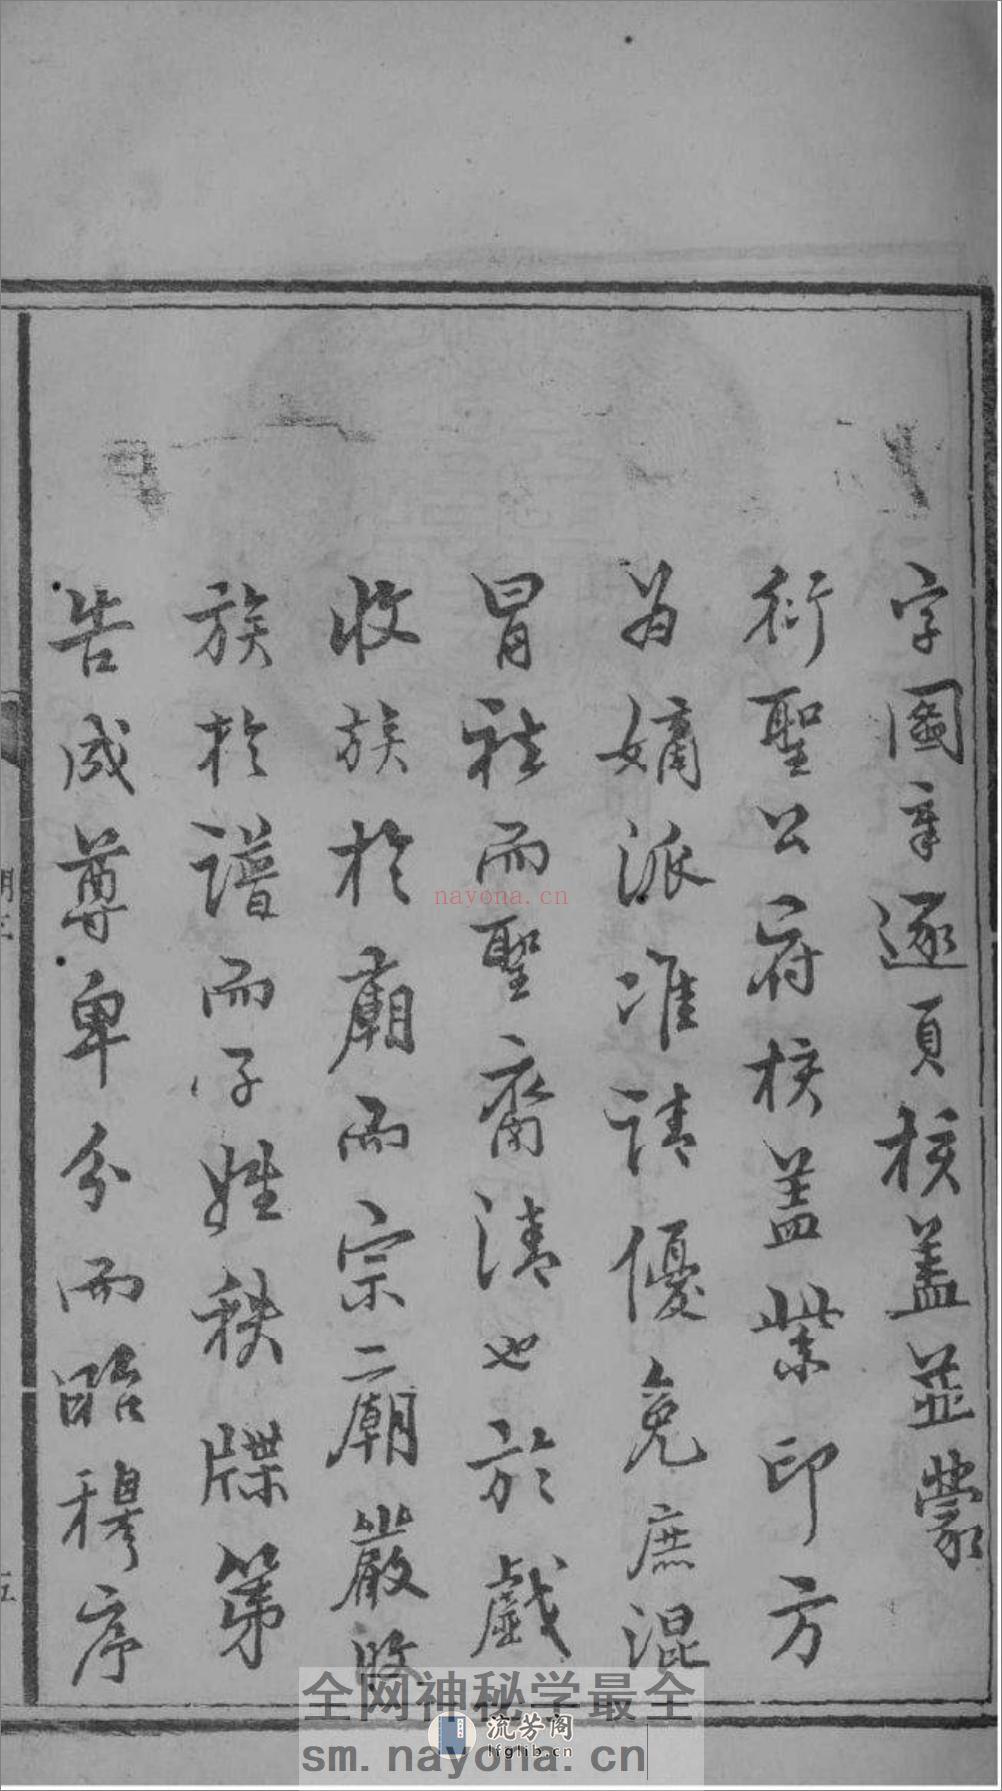 字圖章逐頁核蓋並蒙
衍聖公府核蓋紫印方
为嫡派准請優免庶混
冒祛而聖裔清也於戲
收族於廟而宗廟嚴收
族於譜而子姓秩牒第
告成尊卑分而昭穆序
五
nayona.cn
全网神秘学最全
流芳阁
lfglib.cn
sm.nayona.cn